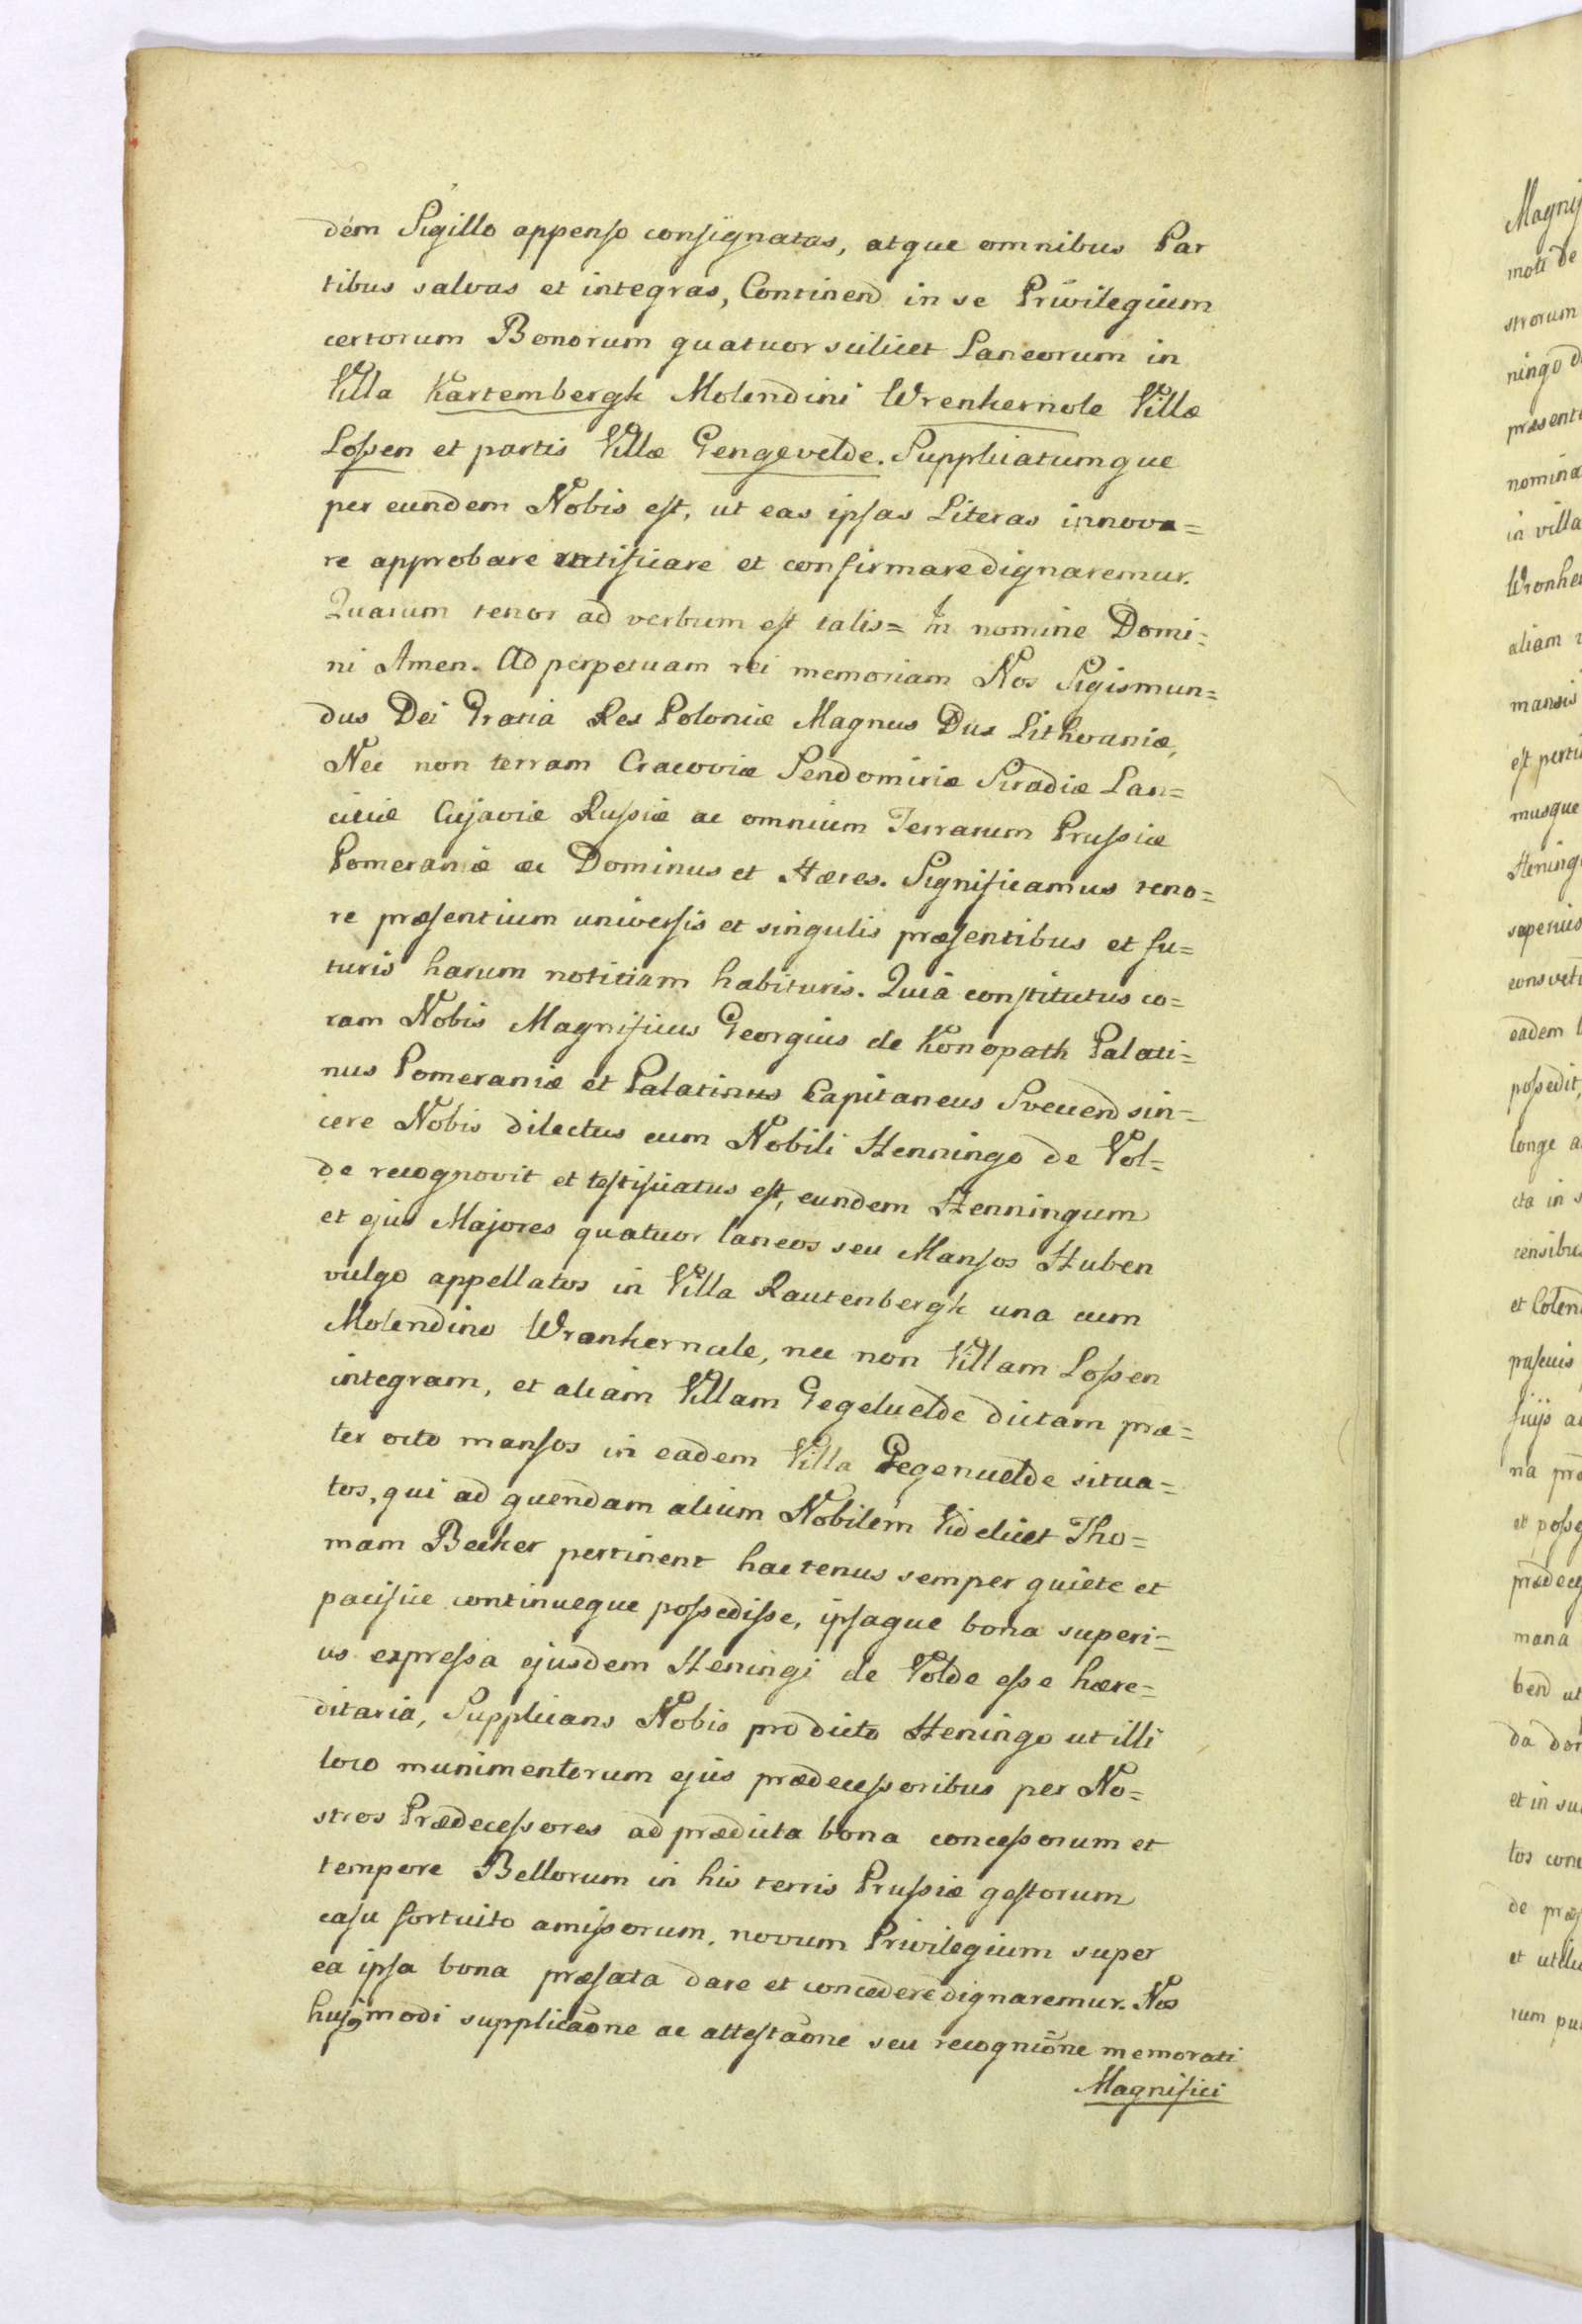 dem Sigillo appenso consignatas, atque omnibus Par
tibus salvas et integras, Continend in se Privilegium
certorum Bonorum quatuor scilicet Laneorum in
Villa Kartembergk Molendini Wrenkernole Villæ
Loſsen et partis Villæ Gengevelde. Supplicatumque
per eundem Nobis eſt, ut eas ipſas Literas innova=
re approbare ratificare et confirmare dignaremur.
Quarum tenor ad verbum eſt talis= In nomine Domi=
ni Amen. Ad perpetuam rei memoriam Nos Sigismun=
dus Dei Gratia Rex Poloniæ Magnus Dux Lithvaniæ,
Nec non terram Cracoviæ Sendomiriæ Siradiæ Lan=
ciciæ Cujaviæ Ruſsiæ ac omnium Terrarum Pruſsiæ
Pomeraniæ ac Dominus et Hæres. Significamus teno=
re præſentium univerſis et singulis præſentibus et fu=
turis harum notitiam habituris. Quia conſtitutus co=
ram Nobis Magnificus Georgius de Konopath Palati=
nus Pomeraniæ et Palatinus Capitaneus Svecend sin=
cere Nobis dilectus cum Nobili Henningo de Vol=
de recognovit et teſtificatus eſt, eundem Henningum
et ejus Majores quatuor laneos seu Manſos Huben
vulgo appellatos in Villa Rautenbergk una cum
Molendino Wrankernule, nec non Villam Loſsen
integram, et aliam Villam Gegeluelde dictam præ=
ter octo manſos in eadem Villa Gegenuelde situa=
tos, qui ad quendam alium Nobilem Videlicet Tho=
mam Becker pertinent hactenus semper quiete et
pacifice continueque poſsediſse, ipſaque bona superi=
us expreſsa ejusdem Heningi de Volde eſse hære=
ditaria, Supplicans Nobis pro dicto Heningo ut illi
loco munimentorum ejus prædeceſsoribus per No=
stros Prædeceſsores ad prædicta bona conceſsorum et
tempore Bellorum in his terris Pruſsiæ geſtorum
caſu fortuito amiſsorum, novum Privilegium super
ea ipſa bona præfata dare et concedere dignaremur. Nos
hujꝰmodi supplicaōne ac atteſtaōne seu recogniōne memorati
Magnifici

Magnif
moti de
strorum
ningo d
præsent
nomina
in villa
Wronke
aliam
mansis
eſt perti
musque
Hening
superius
consvet
eadem
poſsedit,
longe a
cta in s
censibu
et Colen
paſcuis
na pro
et poſs
prædec
mana
bend ut
da don
et in su
tos conc
de præ
et utili
rum pu